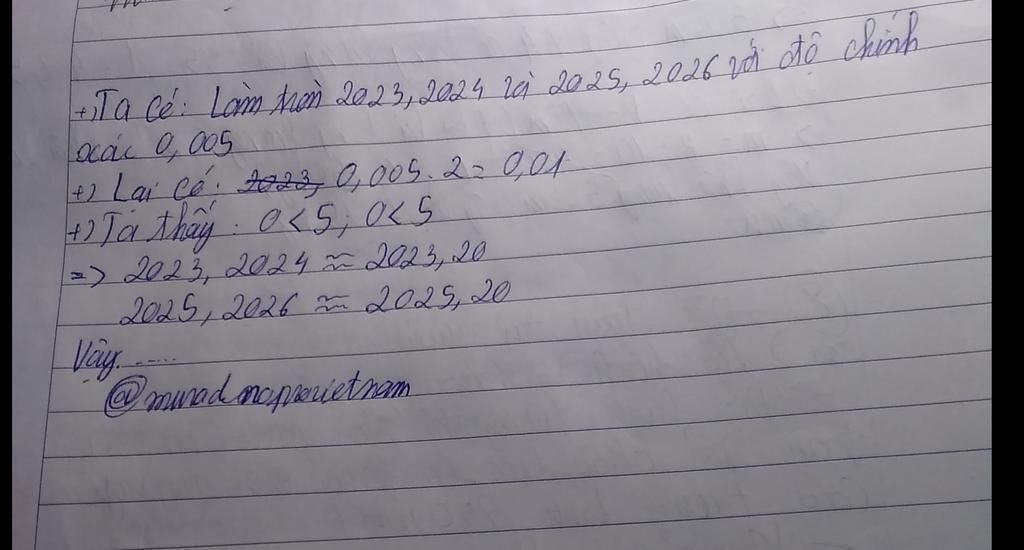 +) Ta có: Làm tròn 2023,2024 và 2025,2026 với độ chính
xác 0,005
+) Lại có: 2023, 0,005.2 = 0,01
+) Ta thấy: 0<5; 0<5
=> 2023,2024 ≈ 2023,20
2025,2026 ≈ 2025,20
Vậy.....